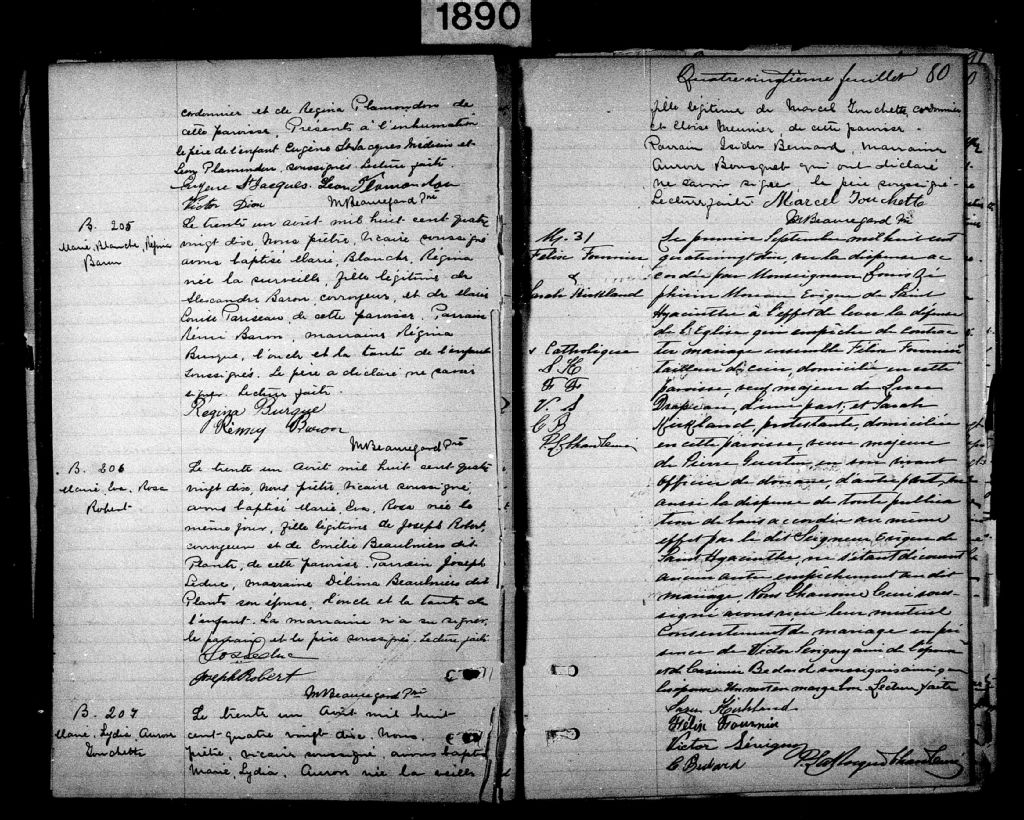 1890
cordonnier et de Régina Plamondon de
cette paroisse. Présents à l'inhumation
le père de l'enfant Eugène St Jacques Médecin et
Léon Plamondon, soussignés. Lecture faite.
Eugène St Jacques. Leon Plamondon
Victor Dion MBeauregard Ptre
B. 205
Marie, Blanche, Régina
Baron
Le trente un août mil huit cent quatre
vingt dix, Nous prêtre, vicaire soussigné
avons baptisé Marie, Blanche, Régina
née la surveille, fille légitime de
Alexandre Baron corroyeur, et de Marie
Louise Pariseau, de cette paroisse. Parrain
Rémi Baron, marraine Régina
Burque, l'oncle et la tante de l'enfant
soussignés. Le père a déclaré ne savoir
signer. Lecture faite.
Regina Burque
Rémmy Baron
MBeauregard Ptre
B. 206
Marie, Eva, Rosa
Robert
Le trente un Août mil huit cent quatre
vingt dix, nous prêtre, vicaire soussigné
avons baptisé Marie, Eva, Rosa née le
même jour, fille légitime de Joseph Robert,
corroyeur et de Emélie Beaulniers dit
Plante, de cette paroisse. Parrain Joseph
Leduc, marraine Délima Beaulniers dit
Plante son épouse, l'oncle et la tante de
l'enfant. La marraine n'a su signer,
le parrain et le père soussignés. Lecture faite
Jos Leduc
Joseph Robert
MBeauregard Ptre
B. 207
Marie, Lydia, Auror
Touchette
Le trente un Août mil huit
cent quatre vingt dix, Nous,
prêtre, vicaire soussigné avons bapt
Marie, Lydia, Auror née la veille
Quatrevingtième feuillet 80
fille légitime de Marcel Touchette, cordonnier
et Eloise Meunier, de cette paroisse.
Parrain Isidor Bernard, Marraine
Auror Bousquet qui ont déclaré
ne savoir signer, le père soussigné.
Lecture faite Marcel Touchette
MBeauregard Ptre
M. 31
Félix Fournier
&
Sarah Kirkland
Le premier Septembre mil huit cent
quatrevingt dix, vu la dispense ac
cordée par Monseigneur Louis Zé
phirin Moreau Evêque de Saint
Hyacinthe à l'effet de lever la défense
de l'Eglise qui empêche de contrac
ter mariage ensemble Félix Fournier
x Catholique
S. K
F F
V. S
C B
tailleur de cuir, domicilié en cette
paroisse, veuf majeur de
Drapeau, d'une part, et Sarah
Kirkland, protestante, domiciliée
en cette paroisse, veuve majeure
de Pierre Guertin, en son vivant
Officier de douane, d'autre part, vu
aussi la dispense de toute publica
tion de bans accordée au même
effet par le dit Seigneur Evêque de
Saint Hyacinthe, ne s'étant découvert
aucun autre empêchement au dit
mariage, Nous Chanoine Curé sous-
signé avons reçu leur mutuel
Consentement de mariage en pré
sence de Victor Sérigny ami de l'époux
et de Casimir Bedard soussignés ainsi que
les époux. Un mot en marge bon. Lecture faite
Sara Kirkland
Félix Fournier
Victor Sérigny
C Bedard